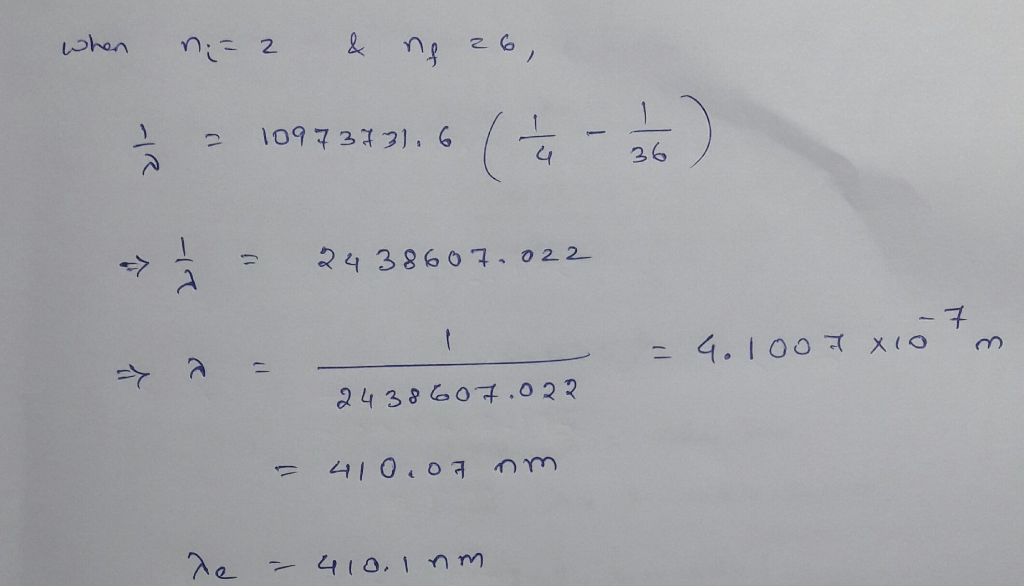 when nᵢ = 2 & n_f = 6,
1/λ = 10973731.6 (1/4 - 1/36)
⇒ 1/λ = 2438607.022
⇒ λ = 1/2438607.022 = 4.1007 x10⁻⁷ m
= 410.07 nm
λe = 410.1 nm